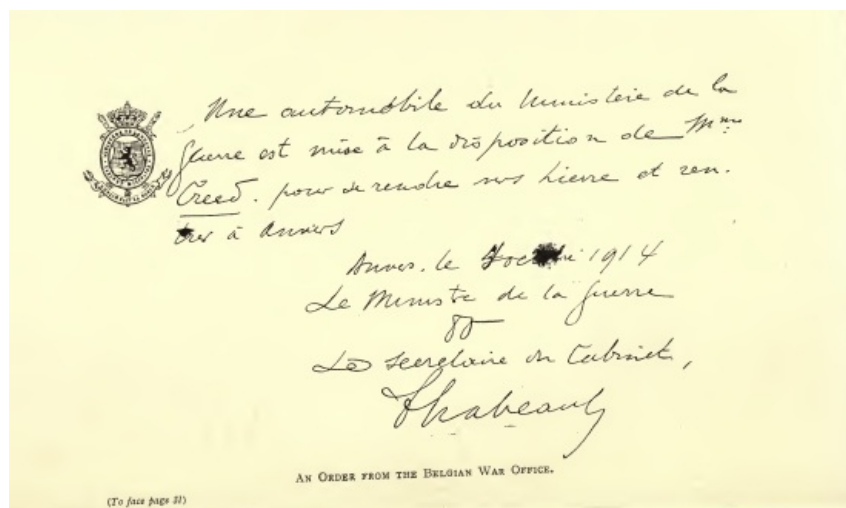 Une automobile du Ministère de la
Guerre est mise à la disposition de Mme
Creed. pour se rendre vers Lierre et ren-
trer à Anvers
Anvers, le 1914
Le Ministre de la Guerre
Le Secrétaire du Cabinet,
AN ORDER FROM THE BELGIAN WAR OFFICE.
(To face page 21)